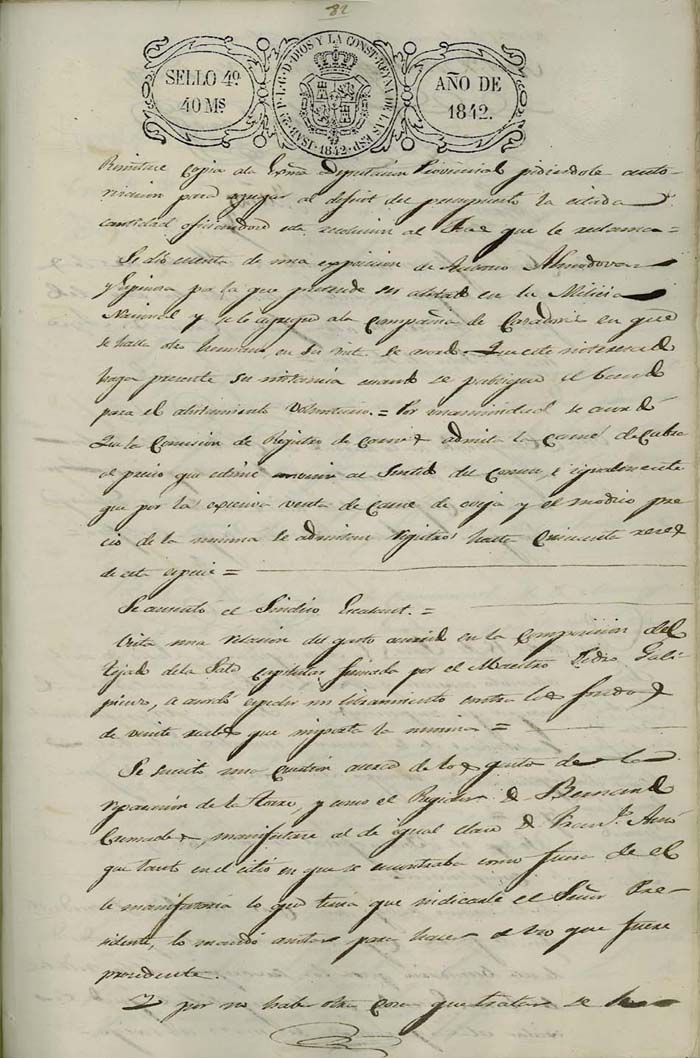 82
SELLO 4º
40 Ms
YSAB. 2ª P. L. G. D. DIOS Y LA CONST. REYNA DE LAS ESP. 1842
AÑO DE
1842.
Remitase copia ala Exma Diputacion Provincial pidiendole auto-
rizacion para agregar al deficit del presupuesto la citada
cantidad oficiandose esta resolucion al Juez que lo reclama=
Se dió cuenta de una exposicion de Antonio Almodovar
y Espinosa por la que pretende ser alistado en la Milicia
Nacional y se le agregue ala Compañia de Cazadores en que
se halla otro hermano, en su vista se acordó. Que este interesado
haga presente su instancia cuando se publique el bando
para el alistamiento voluntario. = Por unanimidad se acordó
Que la Comision de Registro de carnes admita la carne de cabra
al precio que estime con el Sindico del Comun, é igualmente
que por la excesiva venta de carne de oveja y el modico pre-
cio de la misma se admitan registros hasta cincuenta reses
de esta especie =
Se ausentó el Sindico =
Vista una relacion del gasto causado en la composicion del
tejado dela Sala Capitular firmada por el Maestro Pedro Gali-
pienzo, se acordó espedir un libramiento contra los fondos
de veinte reales que importa la misma =
Se suscitó una cuestion acerca de los gastos de la
reparacion de la Torre, y como el Regidor D. Bernardo
manifestase al de igual clase D. Franco.
que tanto en el sitio en que se encontraba como fuera de el
le manifestaria lo que tenia que indicarle el Señor Pre-
sidente, lo mandó anotar para hacer el uso que fuere
procedente.
Y por no haber otra cosa que tratar se